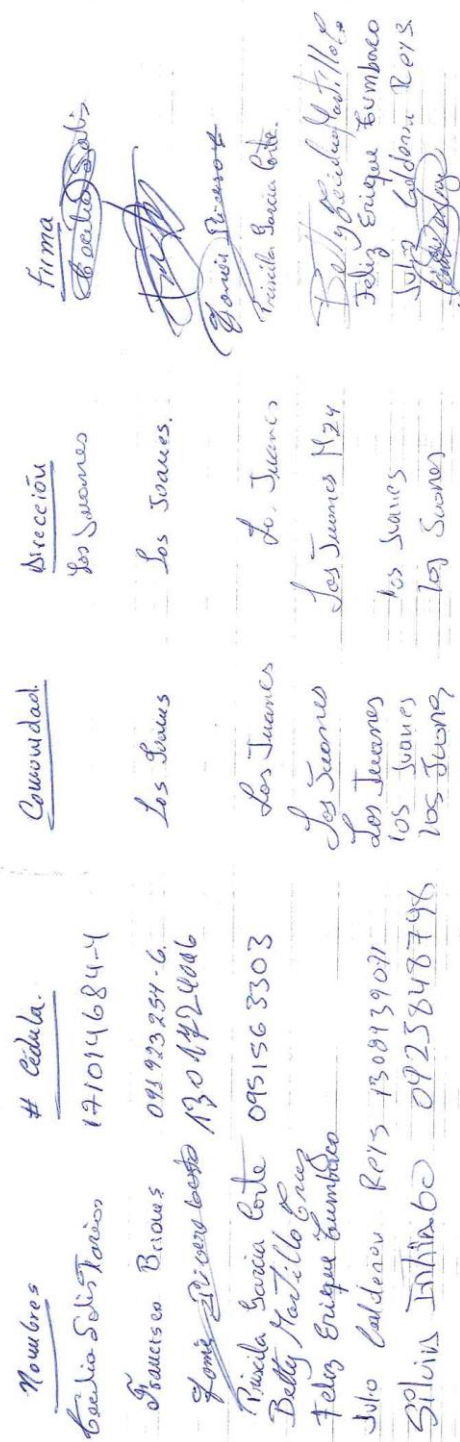 Nombres # Cédula. Comunidad. Dirección Firma
Cecilia Solis 171014684-4 Los Juanes Cecilia Solis
Francisco Briones 091923254-6. Los Juanes Los Juanes.
1301724046
Priscila Garcia Corte 0951563303 Los Juanes Lo. Juanes Priscila Garcia Corte.
Betty Martillo Cruz Los Juanes Los Juanes Mz4 Betty Martillo C
Feliz Erique Tumbaco Los Juanes Feliz Erique Tumbaco
Julio Calderon Reys 1308939071 los Juanes los Juanes Julio Calderon Reys
Silvia 0923848798 los Juanes los Juanes